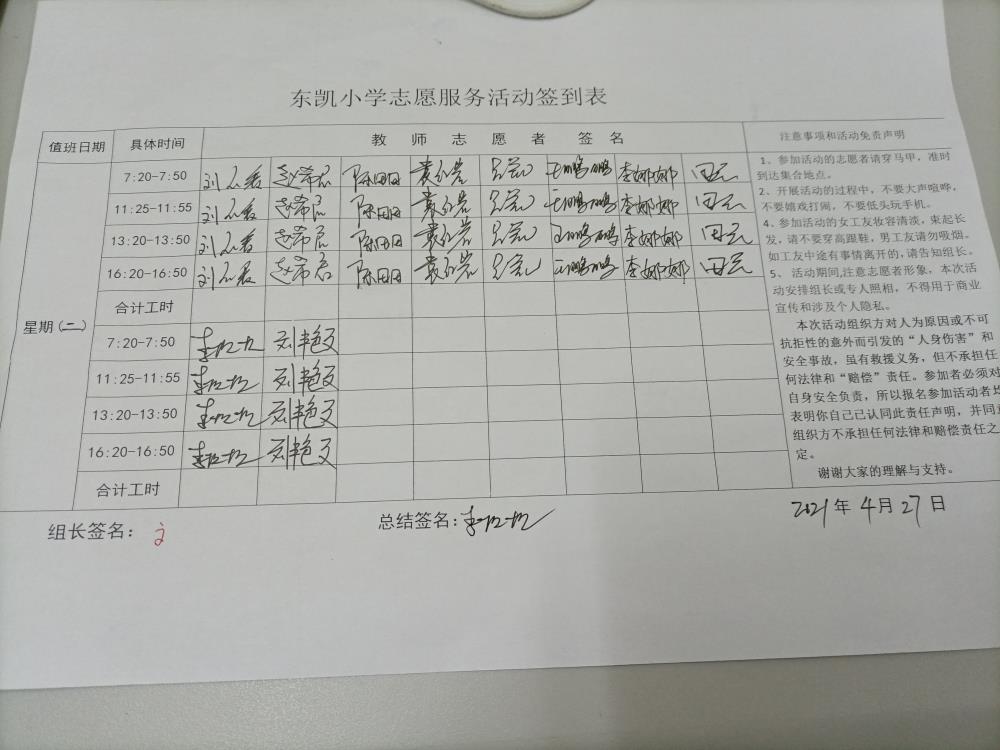 东凯小学志愿服务活动签到表
值班日期 具体时间 教师志愿者签名 注意事项和活动免责声明
7:20-7:50 赵希启 陈田田 袁红岩 王鹏鹏 李娜娜 田云
11:25-11:55 赵希启 陈田田 袁红岩 王鹏鹏 李娜娜 田云
13:20-13:50 赵希启 陈田田 袁红岩 王鹏鹏 李娜娜 田云
16:20-16:50 赵希启 陈田田 袁红岩 王鹏鹏 李娜娜 田云
合计工时
星期(二)
7:20-7:50 刘艳
11:25-11:55 刘艳
13:20-13:50 刘艳
16:20-16:50 刘艳
合计工时
1、参加活动的志愿者请穿马甲，准时
到达集合地点。
2、开展活动的过程中，不要大声喧哗，
不要嬉戏打闹，不要低头玩手机。
4、参加活动的女工友妆容清淡，束起长
发，请不要穿高跟鞋，男工友请勿吸烟。
如工友中途有事情离开的，请告知组长。
5、活动期间,注意志愿者形象，本次活
动安排组长或专人照相，不得用于商业
宣传和涉及个人隐私。
本次活动组织方对人为原因或不可
抗拒性的意外而引发的“人身伤害”和
安全事故，虽有救援义务，但不承担任
何法律和“赔偿”责任。参加者必须对
自身安全负责，所以报名参加活动者均
表明你自己已认同此责任声明，并同意
组织方不承担任何法律和赔偿责任之
定。
谢谢大家的理解与支持。
组长签名： 总结签名: 2021年4月27日